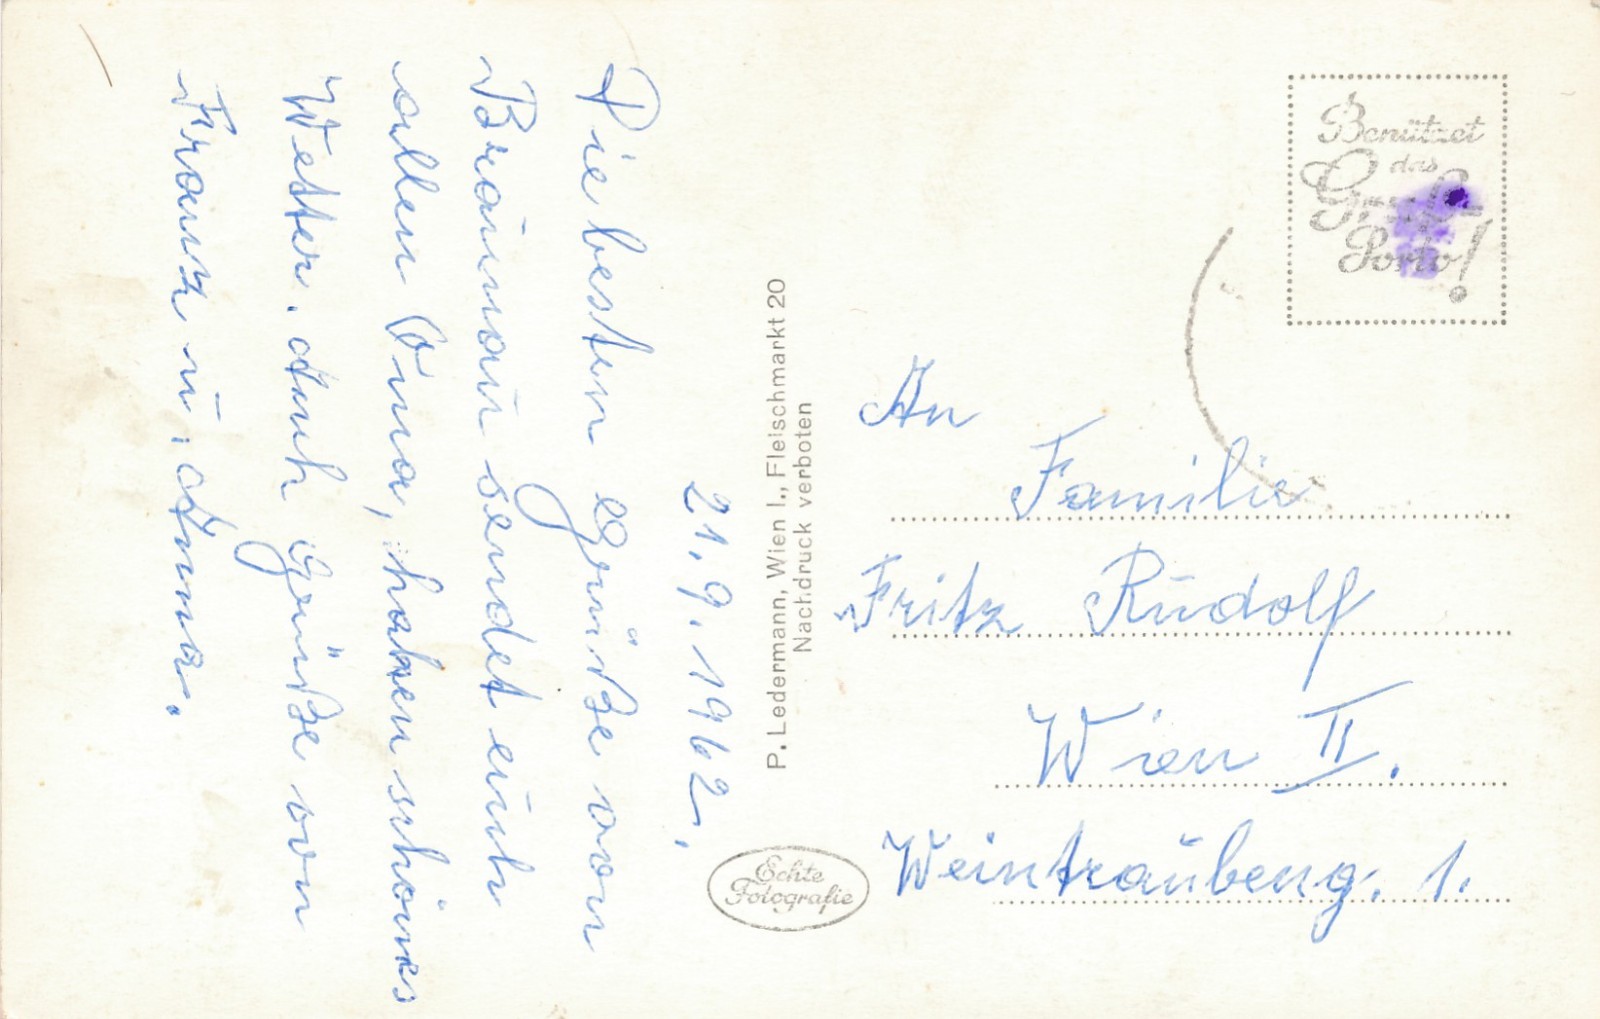 21.9.1962.
Die besten Grüße von
Braunau sendet euch
allen Oma, haben schönes
Wetter. Auch Grüße von
Franz u. Anna.
P. Ledermann, Wien I., Fleischmarkt 20
Nachdruck verboten
Echte
Fotografie
Benützet
das
Porto!
An
Familie
Fritz Rudolf
Wien II.
Weintraubeng. 1.